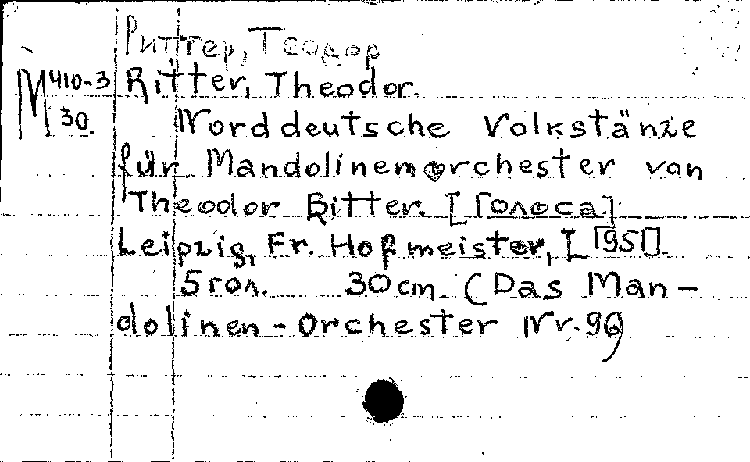 Риттер, Теодор
М 410-3 Ritter, Theodor.
30. Norddeutsche Volkstänze
für Mandolinenorchester von
Theodor Ritter. [Голоса]
Leipzig, Fr. Hofmeister, [1951].
5 гол. 30 cm. (Das Man-
dolinen-Orchester Nr.